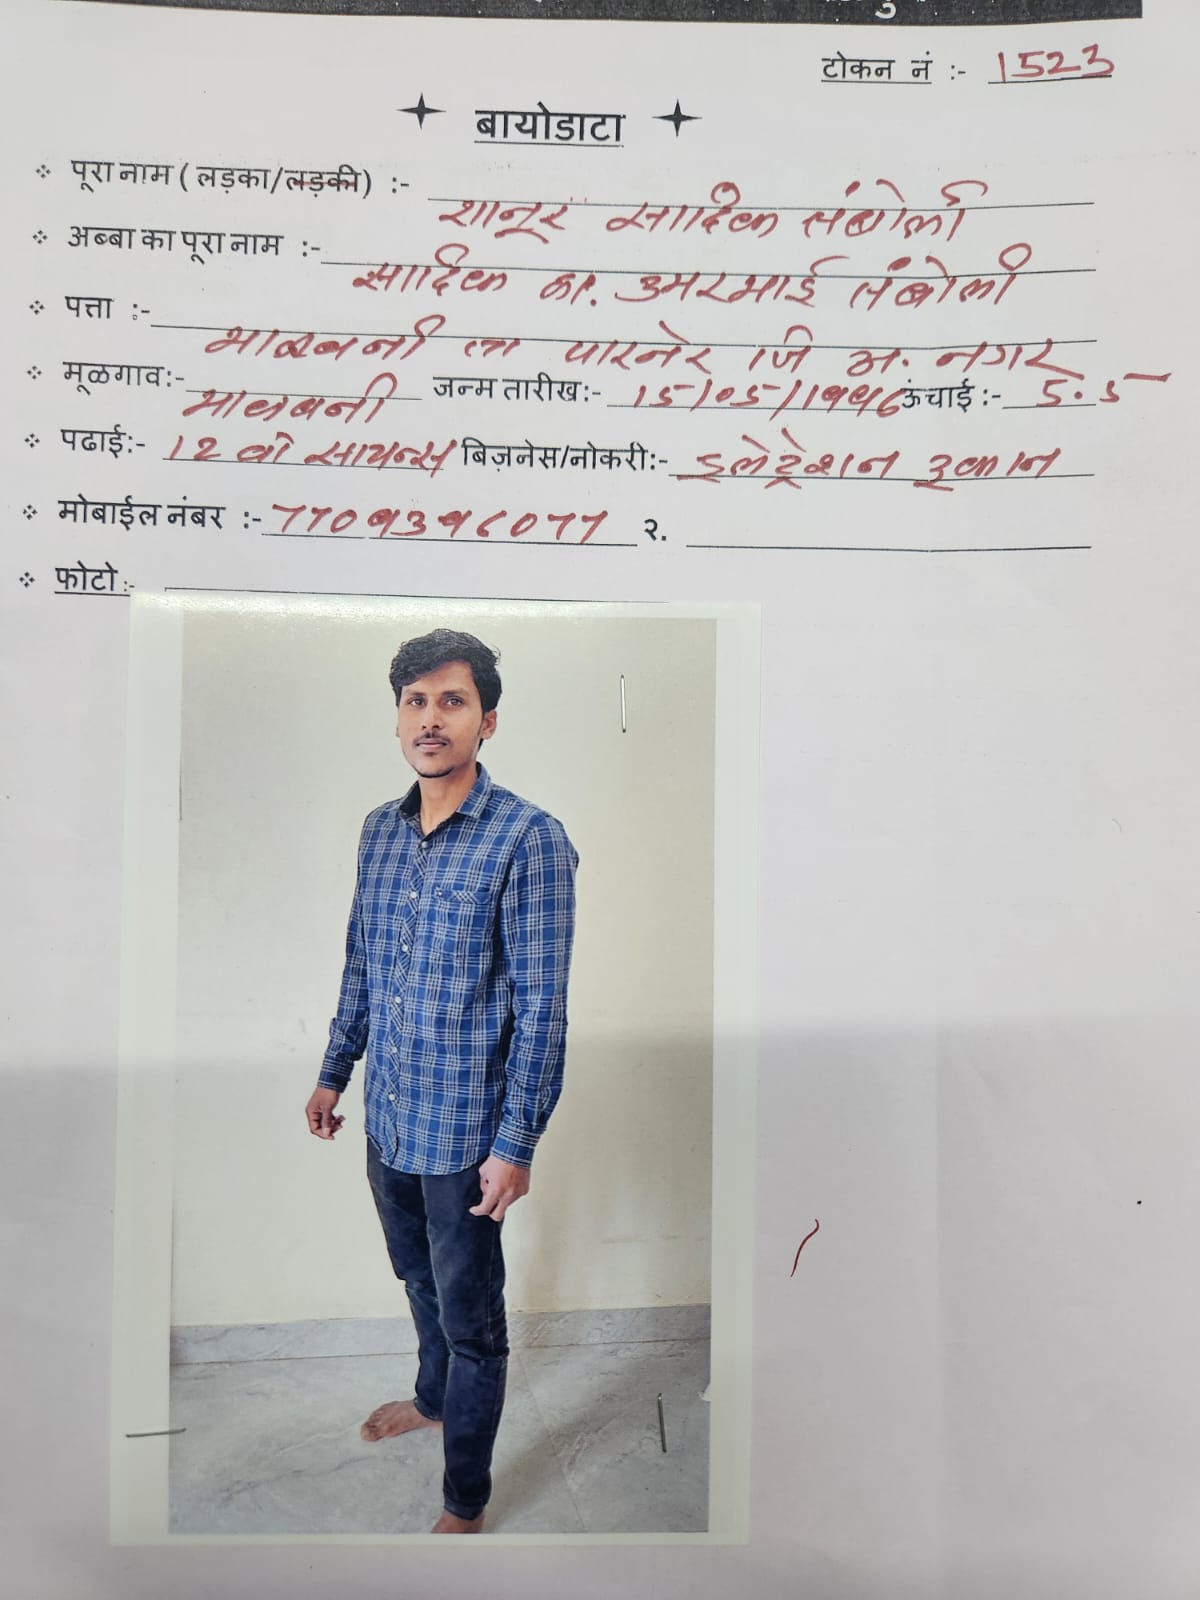 टोकन नं :- 1523
बायोडाटा
पूरा नाम ( लड़का/लड़की) :- शानूर सादिक तंबोली
अब्बा का पूरा नाम :- सादिक उमरभाई तंबोली
पत्ता :- ता पारनेर जि अ. नगर
मूळगाव:- जन्म तारीख:- 15/05/1996 ऊंचाई :- 5.5
पढाई:- 12 वी सायन्स बिज़नेस/नोकरी:- दुकान
मोबाईल नंबर :- 7709396077 २.
फोटो :-